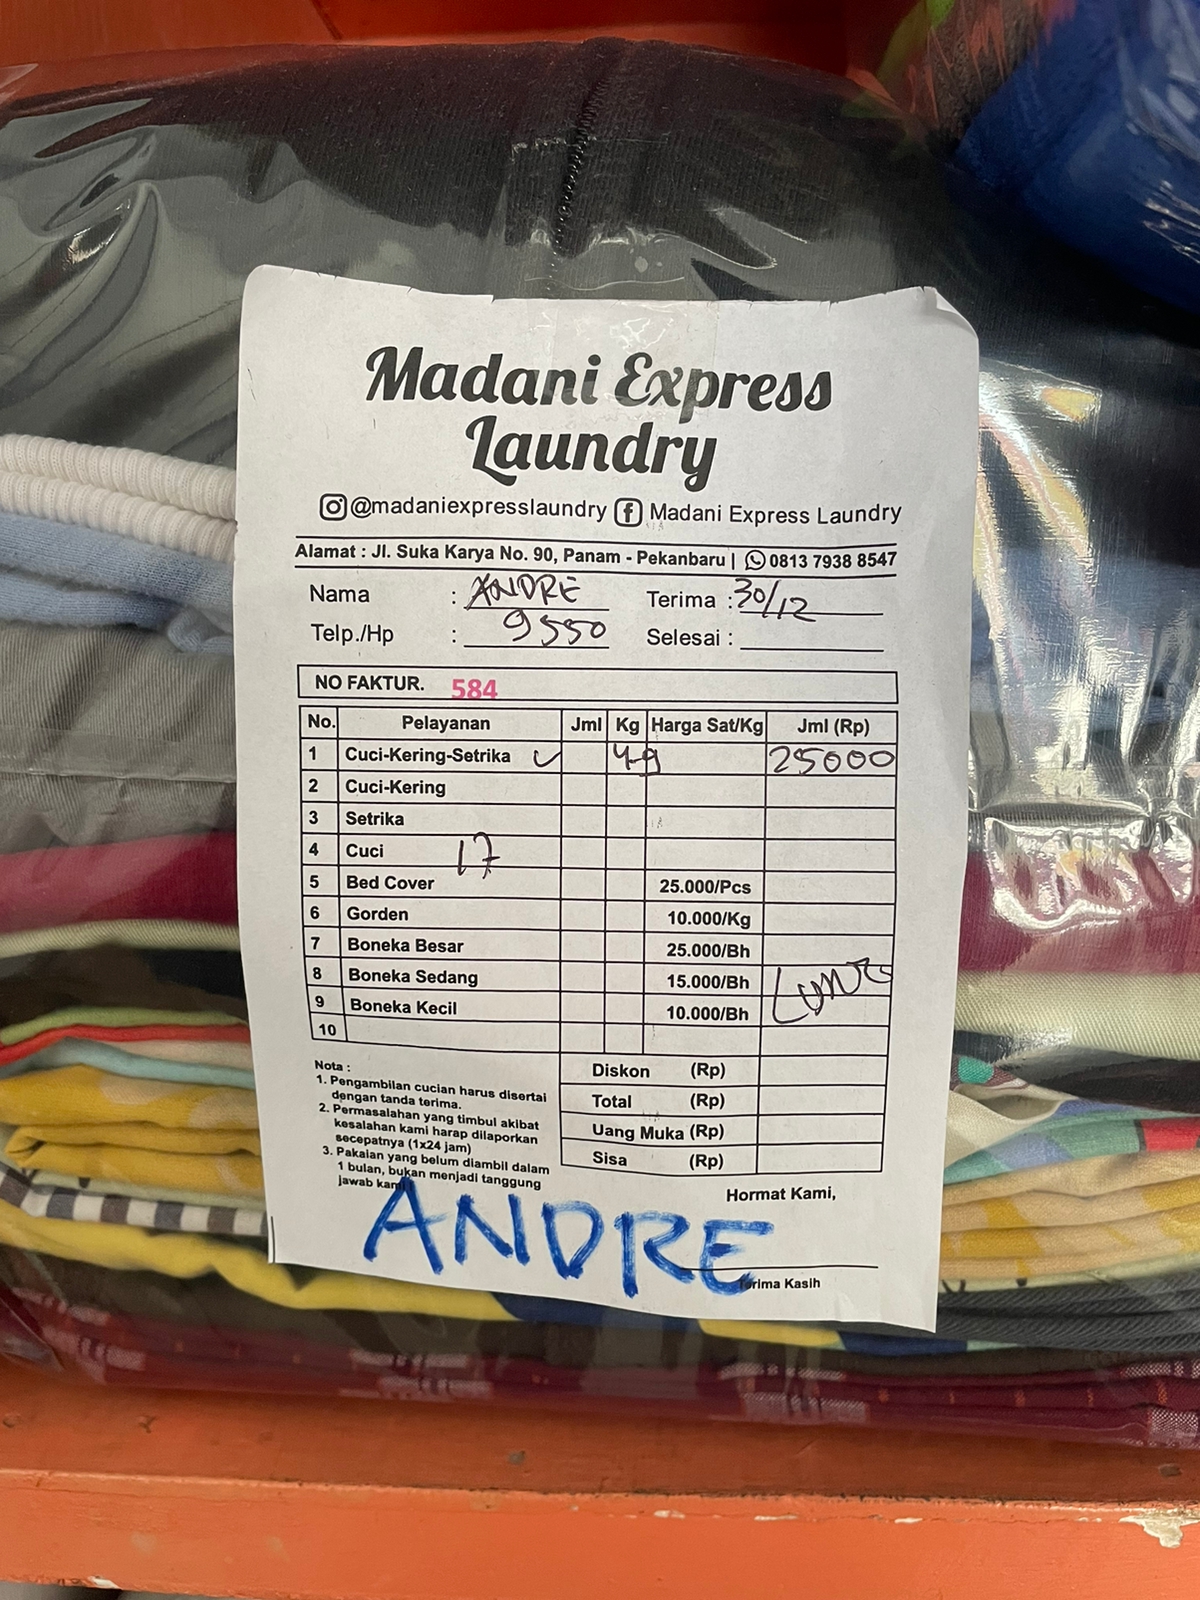 Madani Express
Laundry
@madaniexpresslaundry Madani Express Laundry
Alamat : Jl. Suka Karya No. 90, Panam - Pekanbaru | 0813 7938 8547
Nama : ANDRE Terima : 30/12
Telp./Hp : 9550 Selesai :
NO FAKTUR. 584
No. Pelayanan Jml Kg Harga Sat/Kg Jml (Rp)
1 Cuci-Kering-Setrika 25000
2 Cuci-Kering
3 Setrika
4 Cuci 17
5 Bed Cover 25.000/Pcs
6 Gorden 10.000/Kg
7 Boneka Besar 25.000/Bh
8 Boneka Sedang 15.000/Bh
9 Boneka Kecil 10.000/Bh
10
Diskon (Rp)
Total (Rp)
Uang Muka (Rp)
Sisa (Rp)
Nota :
1. Pengambilan cucian harus disertai
dengan tanda terima.
2. Permasalahan yang timbul akibat
kesalahan kami harap dilaporkan
secepatnya (1x24 jam)
3. Pakaian yang belum diambil dalam
1 bulan, bukan menjadi tanggung
jawab kami
Hormat Kami,
ANDRE
Terima Kasih